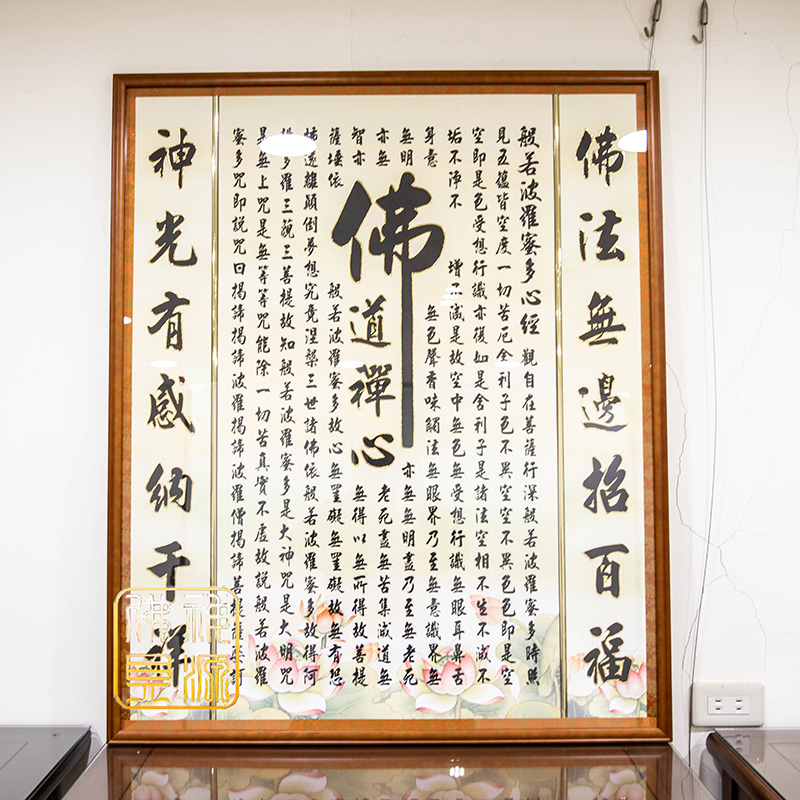 佛法無邊招百福
般若波羅蜜多心經 觀自在菩薩行深般若波羅蜜多時照
見五蘊皆空度一切苦厄舍利子色不異空空不異色色即是空
空即是色受想行識亦復如是舍利子是諸法空相不生不滅不
垢不淨不 增不減是故空中無色無受想行識無眼耳鼻舌
身意 無色聲香味觸法無眼界乃至無意識界無
無明 亦無無明盡乃至無老死
亦無 老死盡無苦集滅道無
智亦 無得以無所得故菩提
佛
道禪心
薩埵依 般若波羅蜜多故心無罣礙無罣礙故無有恐
怖遠離顛倒夢想究竟涅槃三世諸佛依般若波羅蜜多故得阿
耨多羅三藐三菩提故知般若波羅蜜多是大神咒是大明咒
是無上咒是無等等咒能除一切苦真實不虛故說般若波羅
蜜多咒即說咒曰揭諦揭諦波羅揭諦波羅僧揭諦菩提薩婆訶
神光有感納千祥